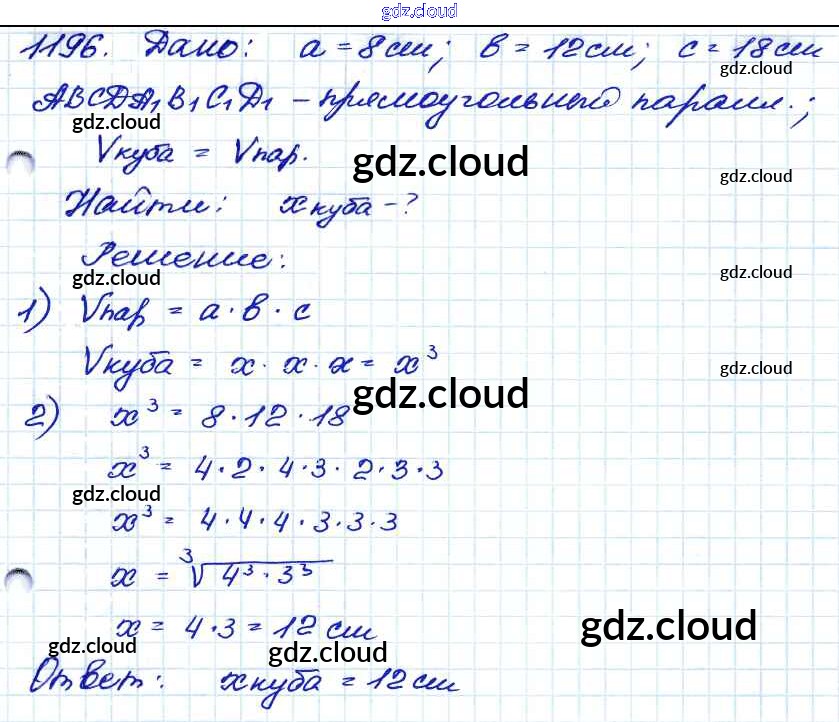 gdz.cloud
1196. Дано: a = 8 см; b = 12 см; c = 18 см
gdz.cloud
ABCDA₁B₁C₁D₁ – прямоугольный паралл.;
gdz.cloud
Vкуба = Vпар.
gdz.cloud
gdz.cloud
Найти: xкуба – ?
Решение:
gdz.cloud
gdz.cloud
1) Vпар = a · b · c
Vкуба = x · x · x = x³
gdz.cloud
gdz.cloud
2) x³ = 8 · 12 · 18
x³ = 4 · 2 · 4 · 3 · 2 · 3 · 3
gdz.cloud
x³ = 4 · 4 · 4 · 3 · 3 · 3
x = ∛4³ · 3³
x = 4 · 3 = 12 см
gdz.cloud
gdz.cloud
gdz.cloud
Ответ: xкуба = 12 см